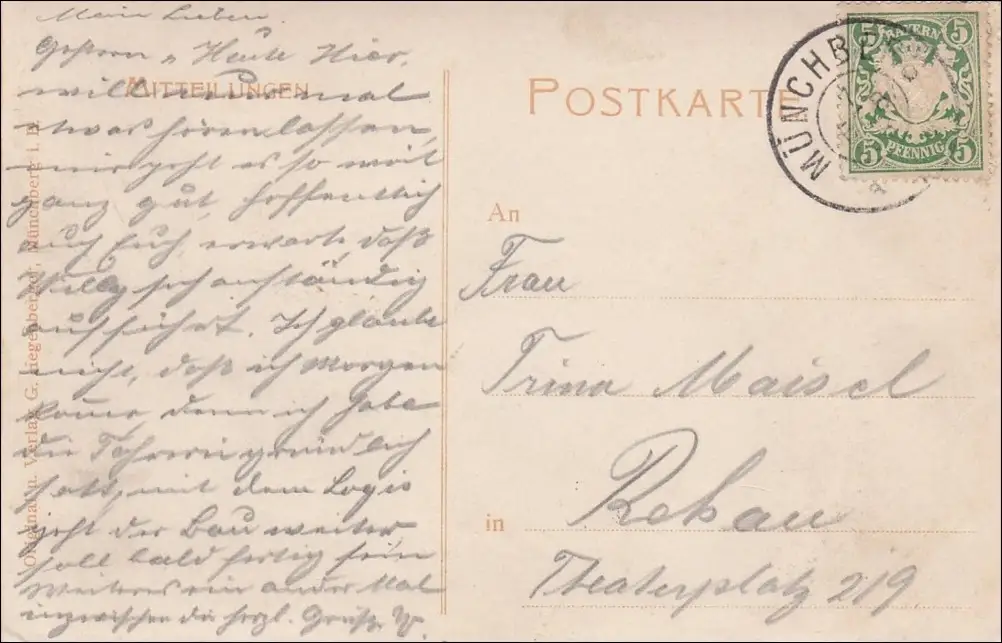 Mein Lieben.
Gestern u Heute Hier,
MITTEILUNGEN
will nun mal
etwas hören lassen,
mir geht es so weit
ganz gut, hoffentlich
auch Euch, erwarte, daß
Willy sich anständig
aufführt. Ich glaube
nicht, daß ich Morgen
komme, denn ich habe
die Fahrerei gründlich
satt, mit dem Logis
geht der Bau weiter
soll bald fertig sein
Weiteres ein ander Mal
inzwischen die herzl. Grüße W.
Original u. Verlag G. Hegenberger, Münchberg i. B.
POSTKARTE
MÜNCHBERG
5 BAYERN 5
5 PFENNIG 5
An
Frau
Trina Maisel
in
Rehau
Theaterplatz 219